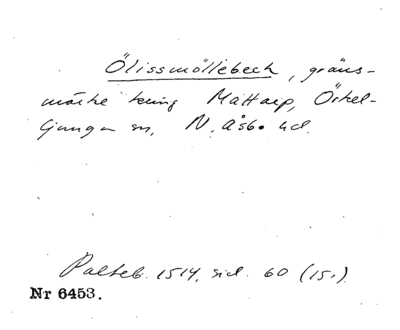 Ölissmöllebech, gräns-
märke kring Mattarp, Örkel-
ljunga sn, N. Åsbo hd.
Palteb. 1514, sid. 60 (15.)
Nr 6453.